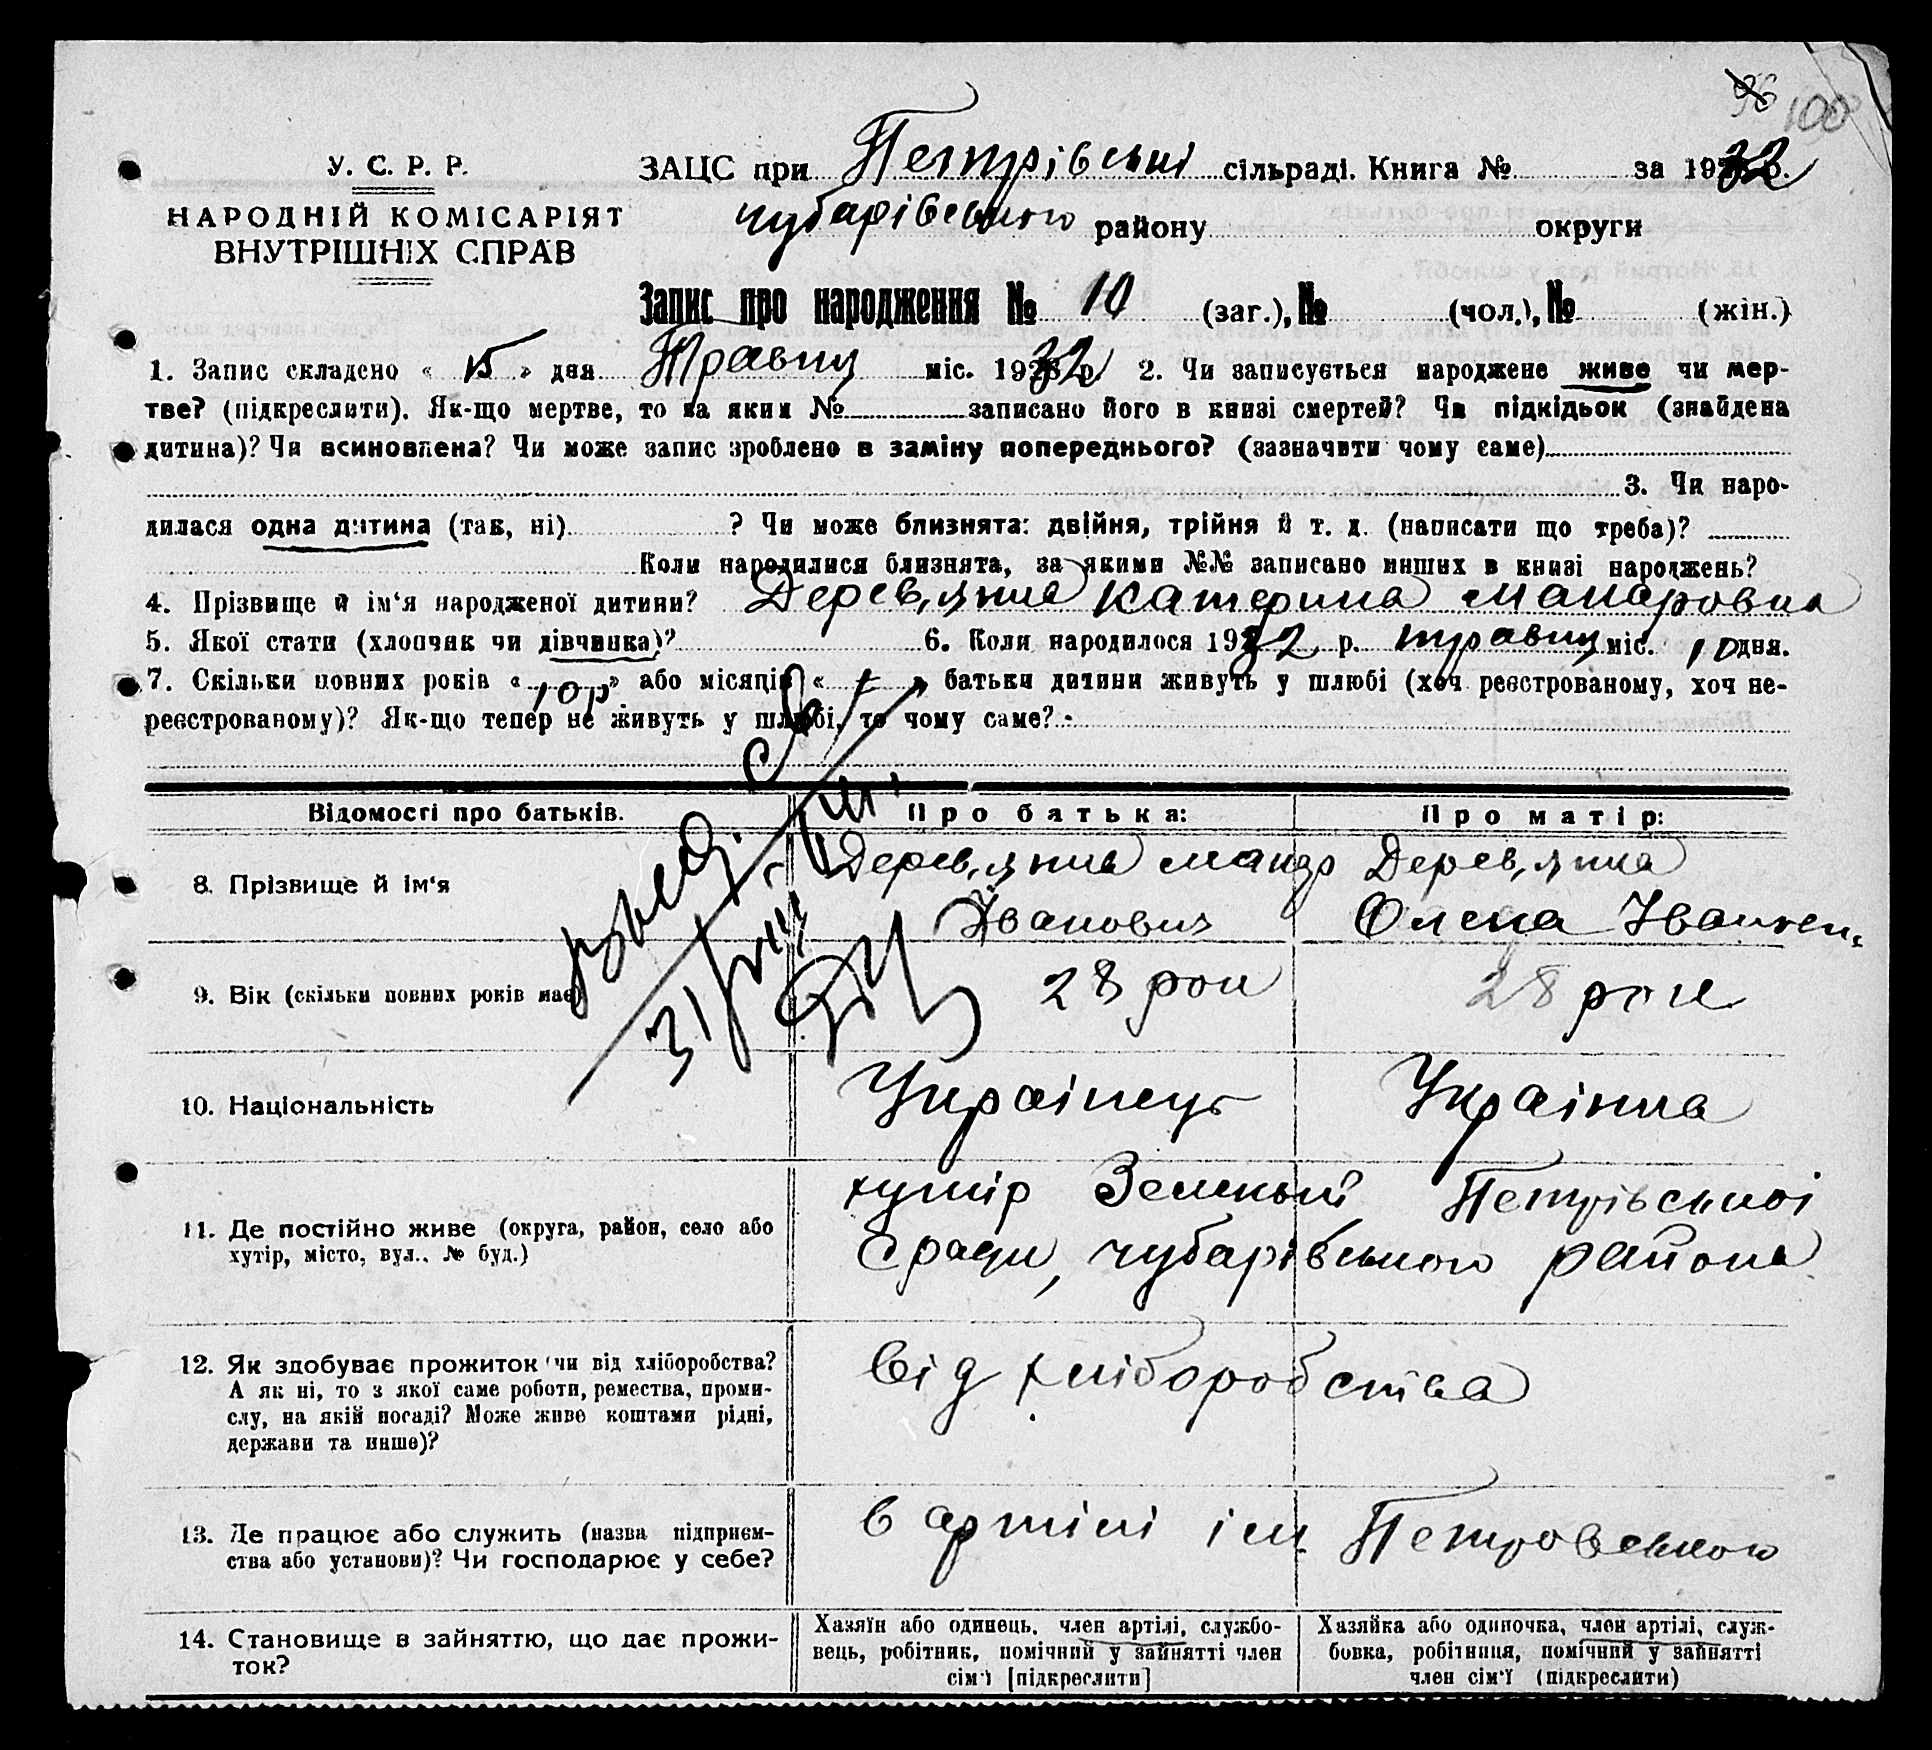 100
У. С. Р. Р.
НАРОДНІЙ КОМІСАРІЯТ
ВНУТРІШНІХ СПРАВ
ЗАЦС при Петрівські сільраді. Книга № за 1932 р.
чубарівського району округи
Запис про народження № 10 (заг.), № (чол.), № (жін.)
1. Запис складено « 15 » дня Травня міс. 1932 р. 2. Чи записується народжене живе чи мер-
тве? (підкреслити). Як-що мертве, то за яким № записано його в книзі смертей? Чи підкідьок (знайдена
дитина)? Чи всиновлена? Чи може запис зроблено в заміну попереднього? (зазначити чому саме)
3. Чи наро-
дилася одна дитина (так, ні) ? Чи може близнята: двійня, трійня й т. д. (написати що треба)?
Коли народилися близнята, за якими №№ записано инших в книзі народжень?
4. Прізвище й ім‘я народженої дитини? Дерев,янка Катерина Макаровна
5. Якої стати (хлопчик чи дівчинка)? 6. Коли народилося 1932 р. травня міс. 10 дня.
7. Скільки повних років « 10 р » або місяців « » батьки дитини живуть у шлюбі (хоч реєстрованому, хоч не-
реєстрованому)? Як-що тепер не живуть у шлюбі, то чому саме?
Відомості про батьків. Про батька: Про матір:
8. Прізвище й ім‘я Дерев,янка Макар Іванович Дерев,янка Олена
9. Вік (скільки повних років має) 28 рок 28 рок
10. Національність Українець Українка
11. Де постійно живе (округа, район, село або
хутір, місто, вул., № буд.)
хутір Петрівської
с ради, чубарівського района
12. Як здобуває прожиток (чи від хліборобства?
А як ні, то з якої саме роботи, ремества, проми-
слу, на якій посаді? Може живе коштами рідні,
держави та инше)?
від хліборобства
13. Де працює або служить (назва підприєм-
ства або установи)? Чи господарює у себе?
в артілі ім Петровського
14. Становище в зайняттю, що дає прожи-
ток?
Хазяїн або одинець, член артілі, службо-
вець, робітник, помічний у зайнятті член
сім‘ї [підкреслити]
Хазяйка або одиночка, член артілі, служ-
бовка, робітниця, помічний у зайнятті
член сім‘ї (підкреслити)